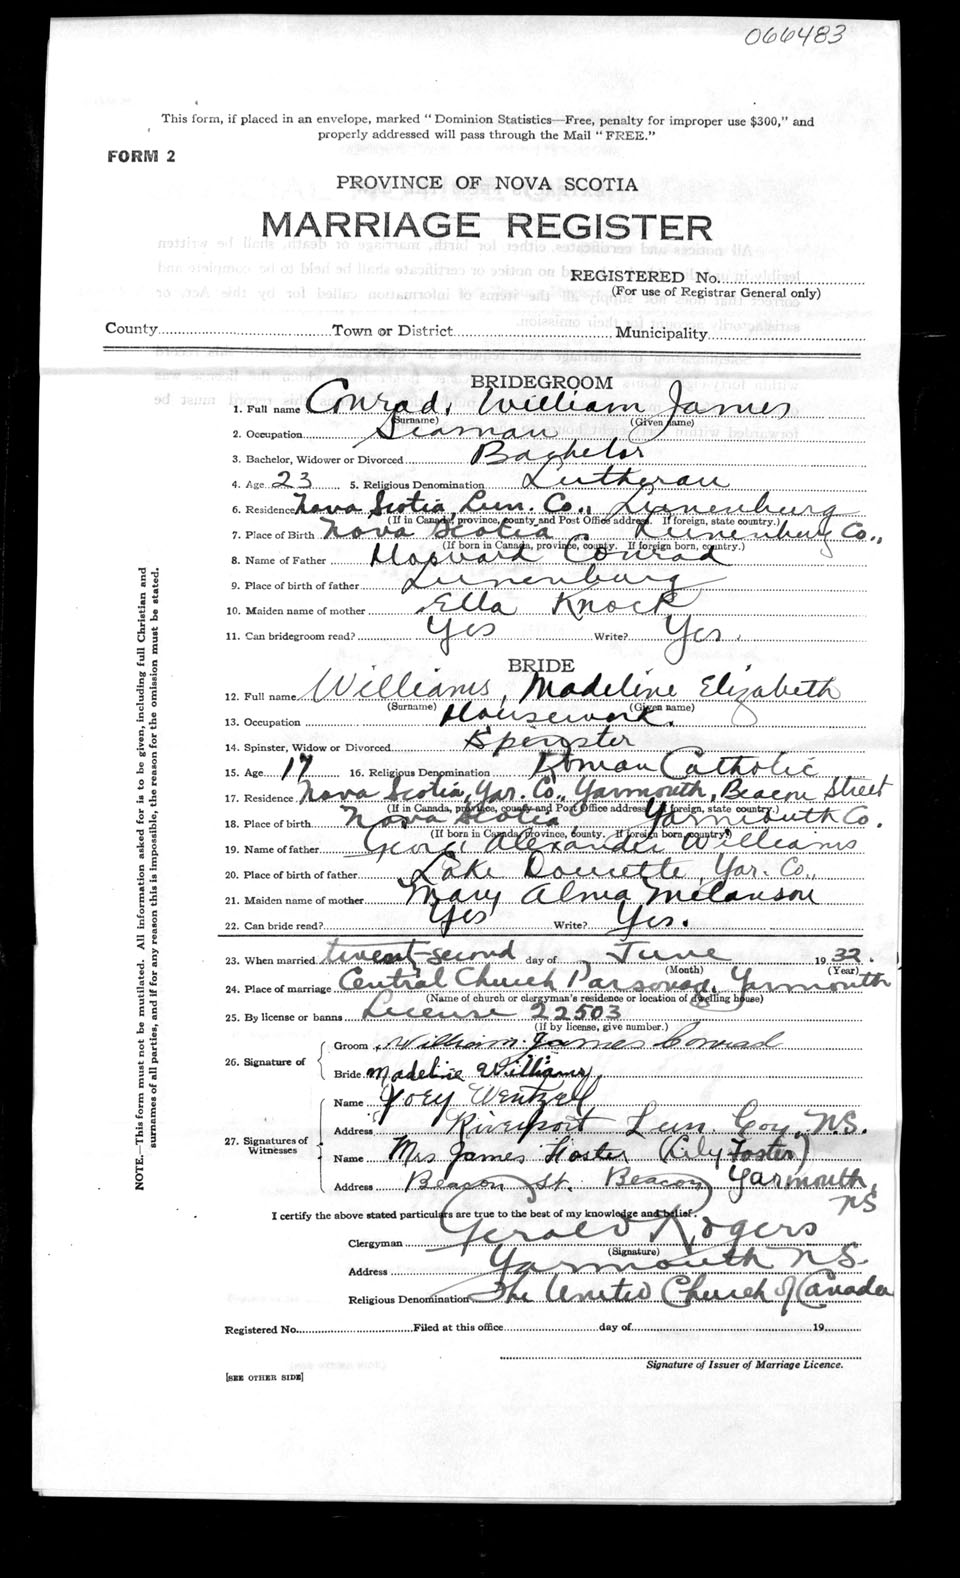 066483
This form, if placed in an envelope, marked "Dominion Statistics—Free, penalty for improper use $300," and
properly addressed will pass through the Mail "FREE."
FORM 2
PROVINCE OF NOVA SCOTIA
MARRIAGE REGISTER
REGISTERED No.
(For use of Registrar General only)
County Town or District Municipality
BRIDEGROOM
1. Full name Conrad, William James
(Surname) (Given name)
2. Occupation Seaman
3. Bachelor, Widower or Divorced Bachelor
4. Age 23 5. Religious Denomination Lutheran
6. Residence Nova Scotia, Lun. Co., Lunenburg
(If in Canada, province, county and Post Office address. If foreign, state country.)
7. Place of Birth Nova Scotia Lunenburg Co.,
(If born in Canada, province, county. If foreign born, country.)
8. Name of Father Howard Conrad
9. Place of birth of father Lunenburg
10. Maiden name of mother Ella Knock
11. Can bridegroom read? Yes Write? Yes.
BRIDE
12. Full name Williams, Madeline Elizabeth
(Surname) (Given name)
13. Occupation Housework.
14. Spinster, Widow or Divorced Spinster
15. Age 17 16. Religious Denomination Roman Catholic
17. Residence Nova Scotia, Yar. Co., Yarmouth, Beacon Street
(If in Canada, province, county and Post Office address. If foreign, state country.)
18. Place of birth Nova Scotia Yarmouth Co.
(If born in Canada, province, county. If foreign born, country.)
19. Name of father George Alexander Williams
20. Place of birth of father Lake Doucette, Yar. Co.,
21. Maiden name of mother Mary Alma Melanson
22. Can bride read? Yes Write? Yes.
23. When married twenty-second day of June 19 32.
(Month) (Year)
24. Place of marriage Central Church Parsonage, Yarmouth
(Name of church or clergyman's residence or location of dwelling house)
25. By license or banns License 22503
(If by license, give number.)
26. Signature of Groom William James Conrad
Bride Madeline Williams
27. Signatures of Witnesses Name Joey Wentzell
Address Riverport Lun. Coy, N.S.
Name Mrs James Foster (Lily Foster)
Address Beacon St. Beacon Yarmouth,
NS
I certify the above stated particulars are true to the best of my knowledge and belief.
Clergyman Gerald Rogers
(Signature)
Address Yarmouth N.S.
Religious Denomination The United Church of Canada
Registered No. Filed at this office day of 19
Signature of Issuer of Marriage Licence.
[SEE OTHER SIDE]
NOTE.—This form must not be mutilated. All information asked for is to be given, including full Christian and
surnames of all parties, and if for any reason this is impossible, the reason for the omission must be stated.